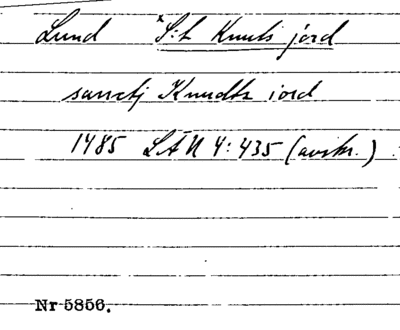 Lund *S:t Knuts jord
sanctj Knudtz iord
1485 LÄU 4:435 (avskr.)
Nr 5856.